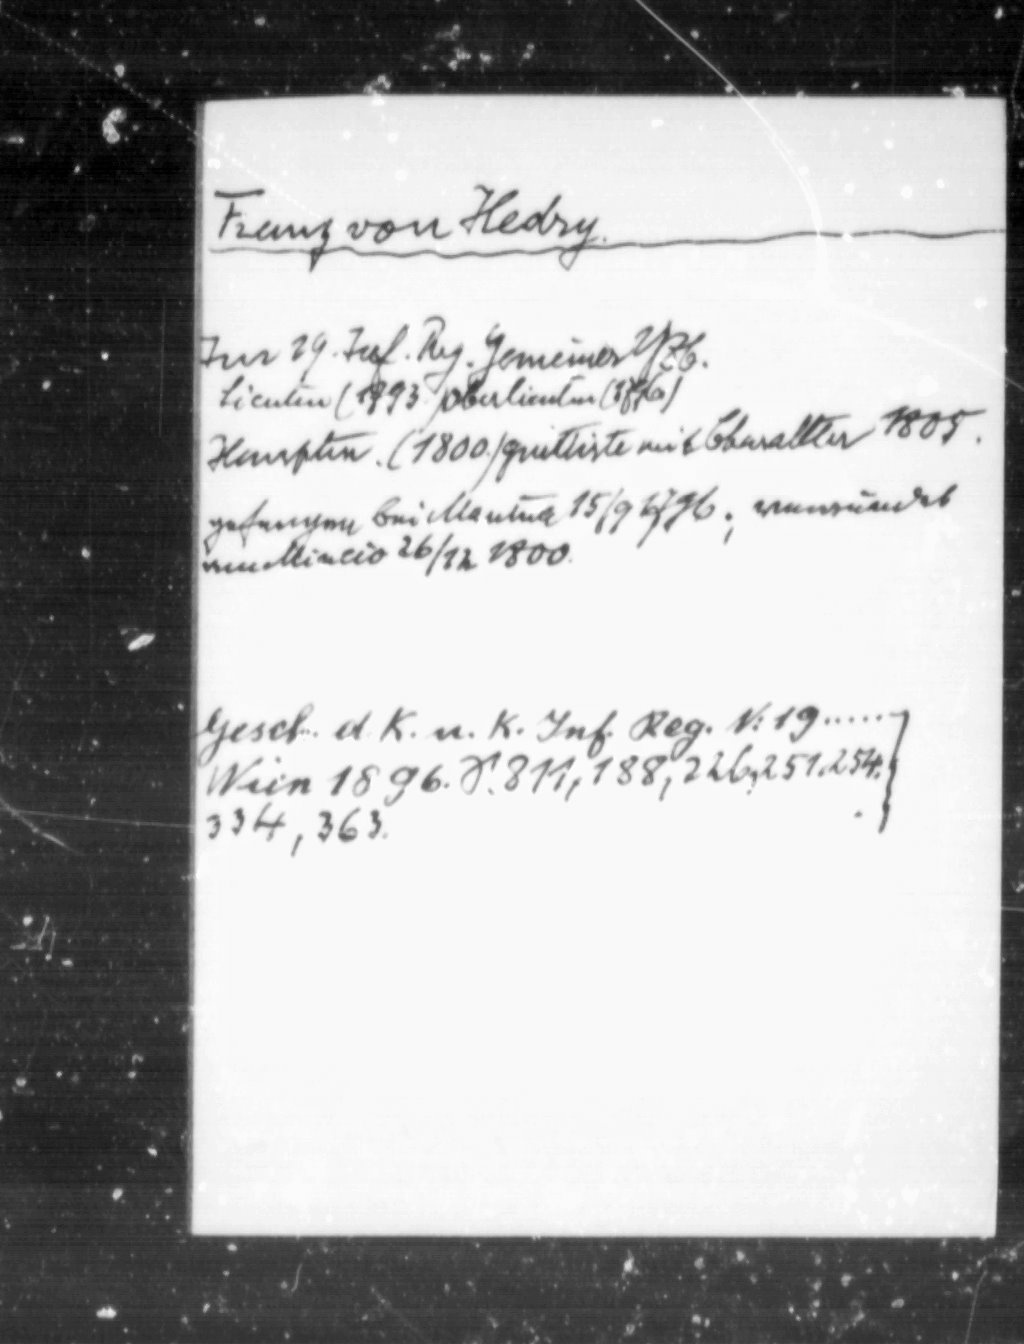 Franz von Hedry.
Im 19. Inf. Reg. Gemeiner
Lieuten (1793) Oberlieuten (1796)
Hauptm. (1800) quittirte mit Charakter 1805.
gefangen bei Mantua 15/9 1796; verwundet
am Mincio 26/12 1800.
Gesch. d. K. u. K. Inf. Reg. N: 19 ......
Wien 1896. S. 811, 188, 226, 251, 254,
334, 363.